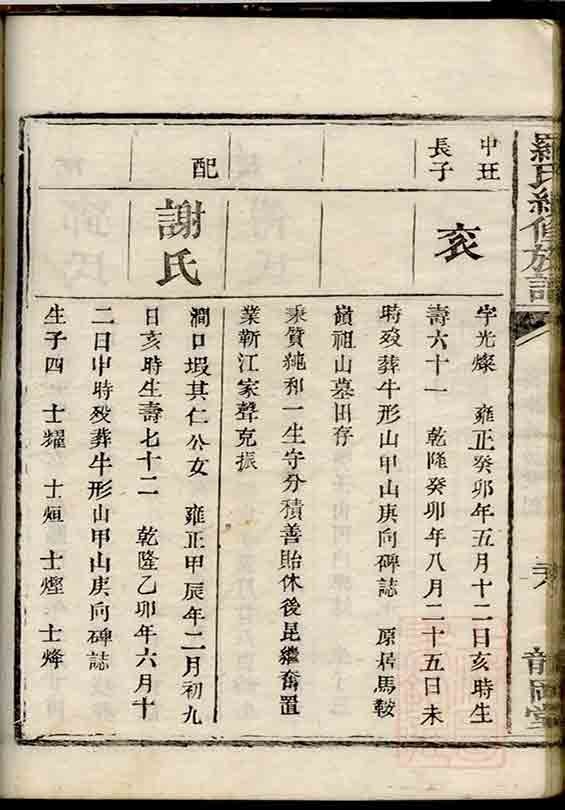 羅氏續修族譜
龍岡堂
申玨
長子
袞
字光燦 雍正癸卯年五月十二日亥時生
壽六十一 乾隆癸卯年八月二十五日未
時歿葬牛形山甲山庚向碑誌 原居馬鞍
嶺祖山墓田存
秉質純和一生守分積善貽休後昆繼奮置
業靳江家聲克振
配
謝氏
澗口塅其仁公女 雍正甲辰年二月初九
日亥時生壽七十二 乾隆乙卯年六月十
二日申時歿葬牛形山甲山庚向碑誌
生子四 士耀 士烜 士熞 士烽